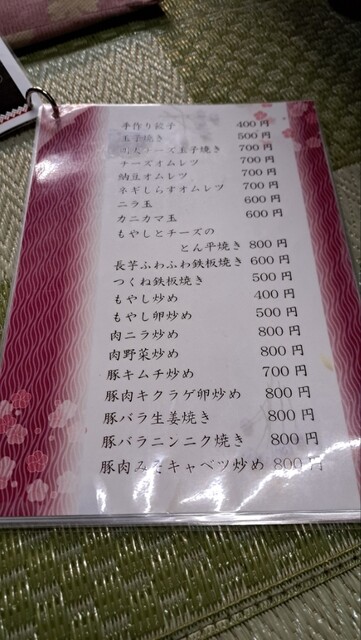 手作り餃子 400円
玉子焼き 500円
チーズ玉子焼き 700円
チーズオムレツ 700円
納豆オムレツ 700円
ネギしらすオムレツ 700円
ニラ玉 600円
カニカマ玉 600円
もやしとチーズの
とん平焼き 800円
長芋ふわふわ鉄板焼き 600円
つくね鉄板焼き 500円
もやし炒め 400円
もやし卵炒め 500円
肉ニラ炒め 800円
肉野菜炒め 800円
豚キムチ炒め 700円
豚肉キクラゲ卵炒め 800円
豚バラ生姜焼き 800円
豚バラニンニク焼き 800円
豚肉みそキャベツ炒め 800円